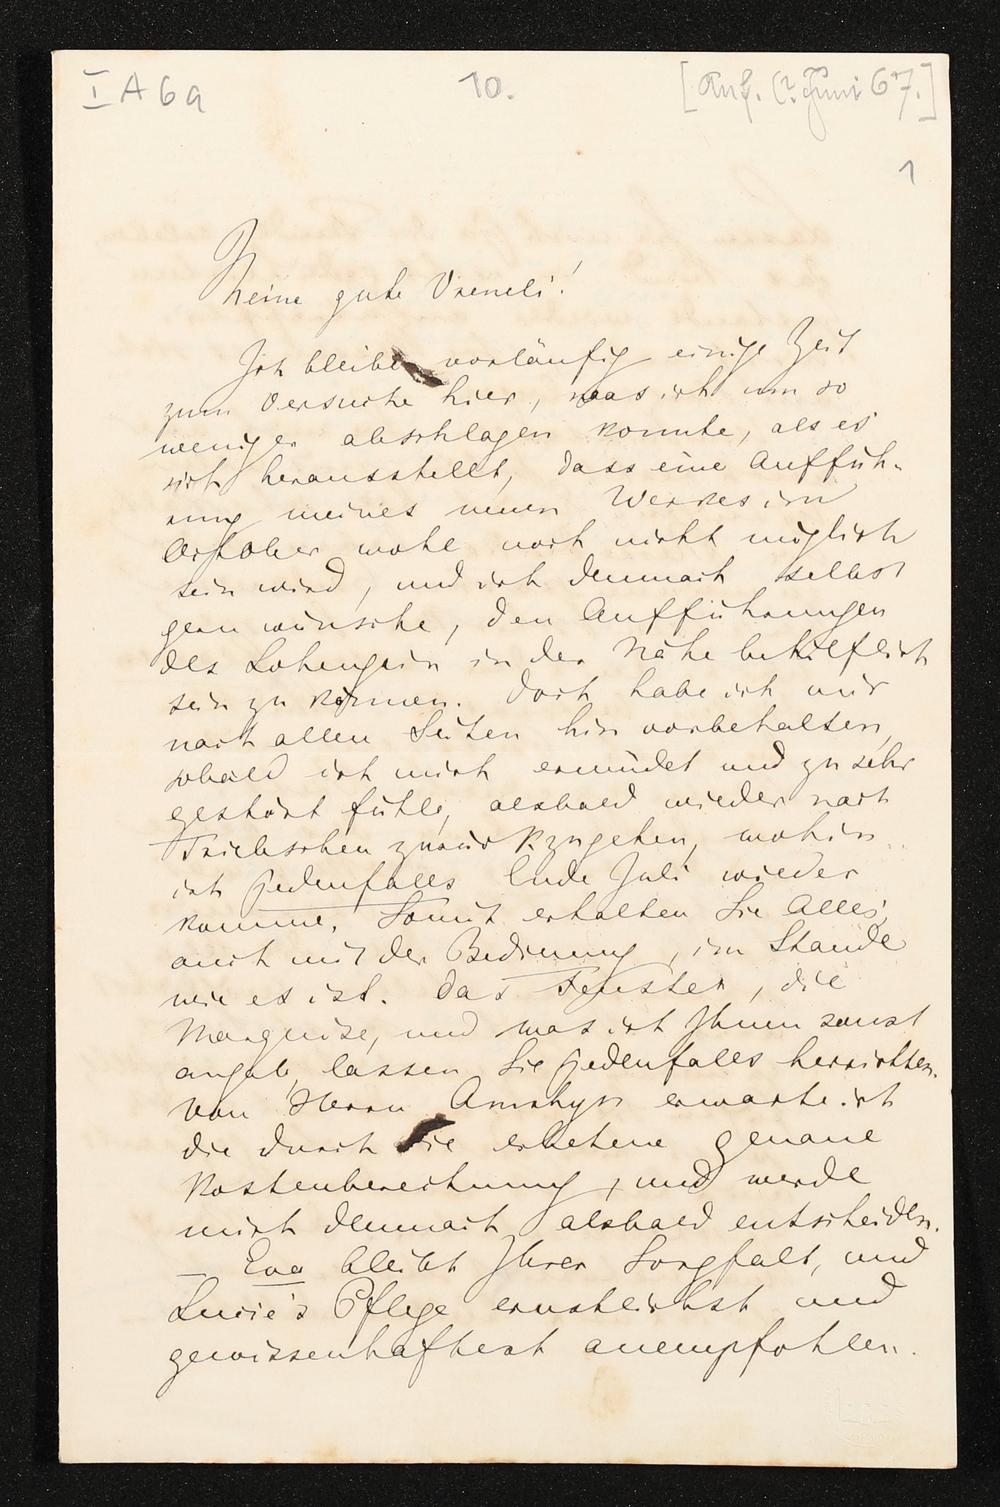 I A 6a
10.
[Anf. (?. Juni 67.]
1
Meine gute Vreneli!
Ich bleibe vorläufig einige Zeit
zum Versuche hier, was ich um so
weniger abschlagen konnte, als es
sich herausstellt, dass eine Auffüh-
rung meines neuen Werkes im
October wohl noch nicht möglich
sein wird, und ich demnach selbst
gern wünsche, den Aufführungen
des Lohengrin in der Nähe behilflich
sein zu können. Doch habe ich mir
nach allen Seiten hin vorbehalten,
sobald ich mich ermüdet und zu sehr
gestört fühle, alsbald wieder nach
Triebschen zurückzugehen, wohin
ich jedenfalls Ende Juli wieder
komme. Somit erhalten Sie Alles,
auch mit der Bedienung, im Stande
wie es ist. Das Fenster, die
Marquise, und was ich Ihnen sonst
angab, lassen Sie jedenfalls herrichten.
Von Herrn Amrhyn erwarte ich
die durch Sie erbetene genaue
Kostenberechnung, und werde
mich demnach alsbald entscheiden.
— Eva bleibt Ihrer Sorgfalt, und
Lucie's Pflege ernstlichst und
gewissenhaftest anempfohlen.